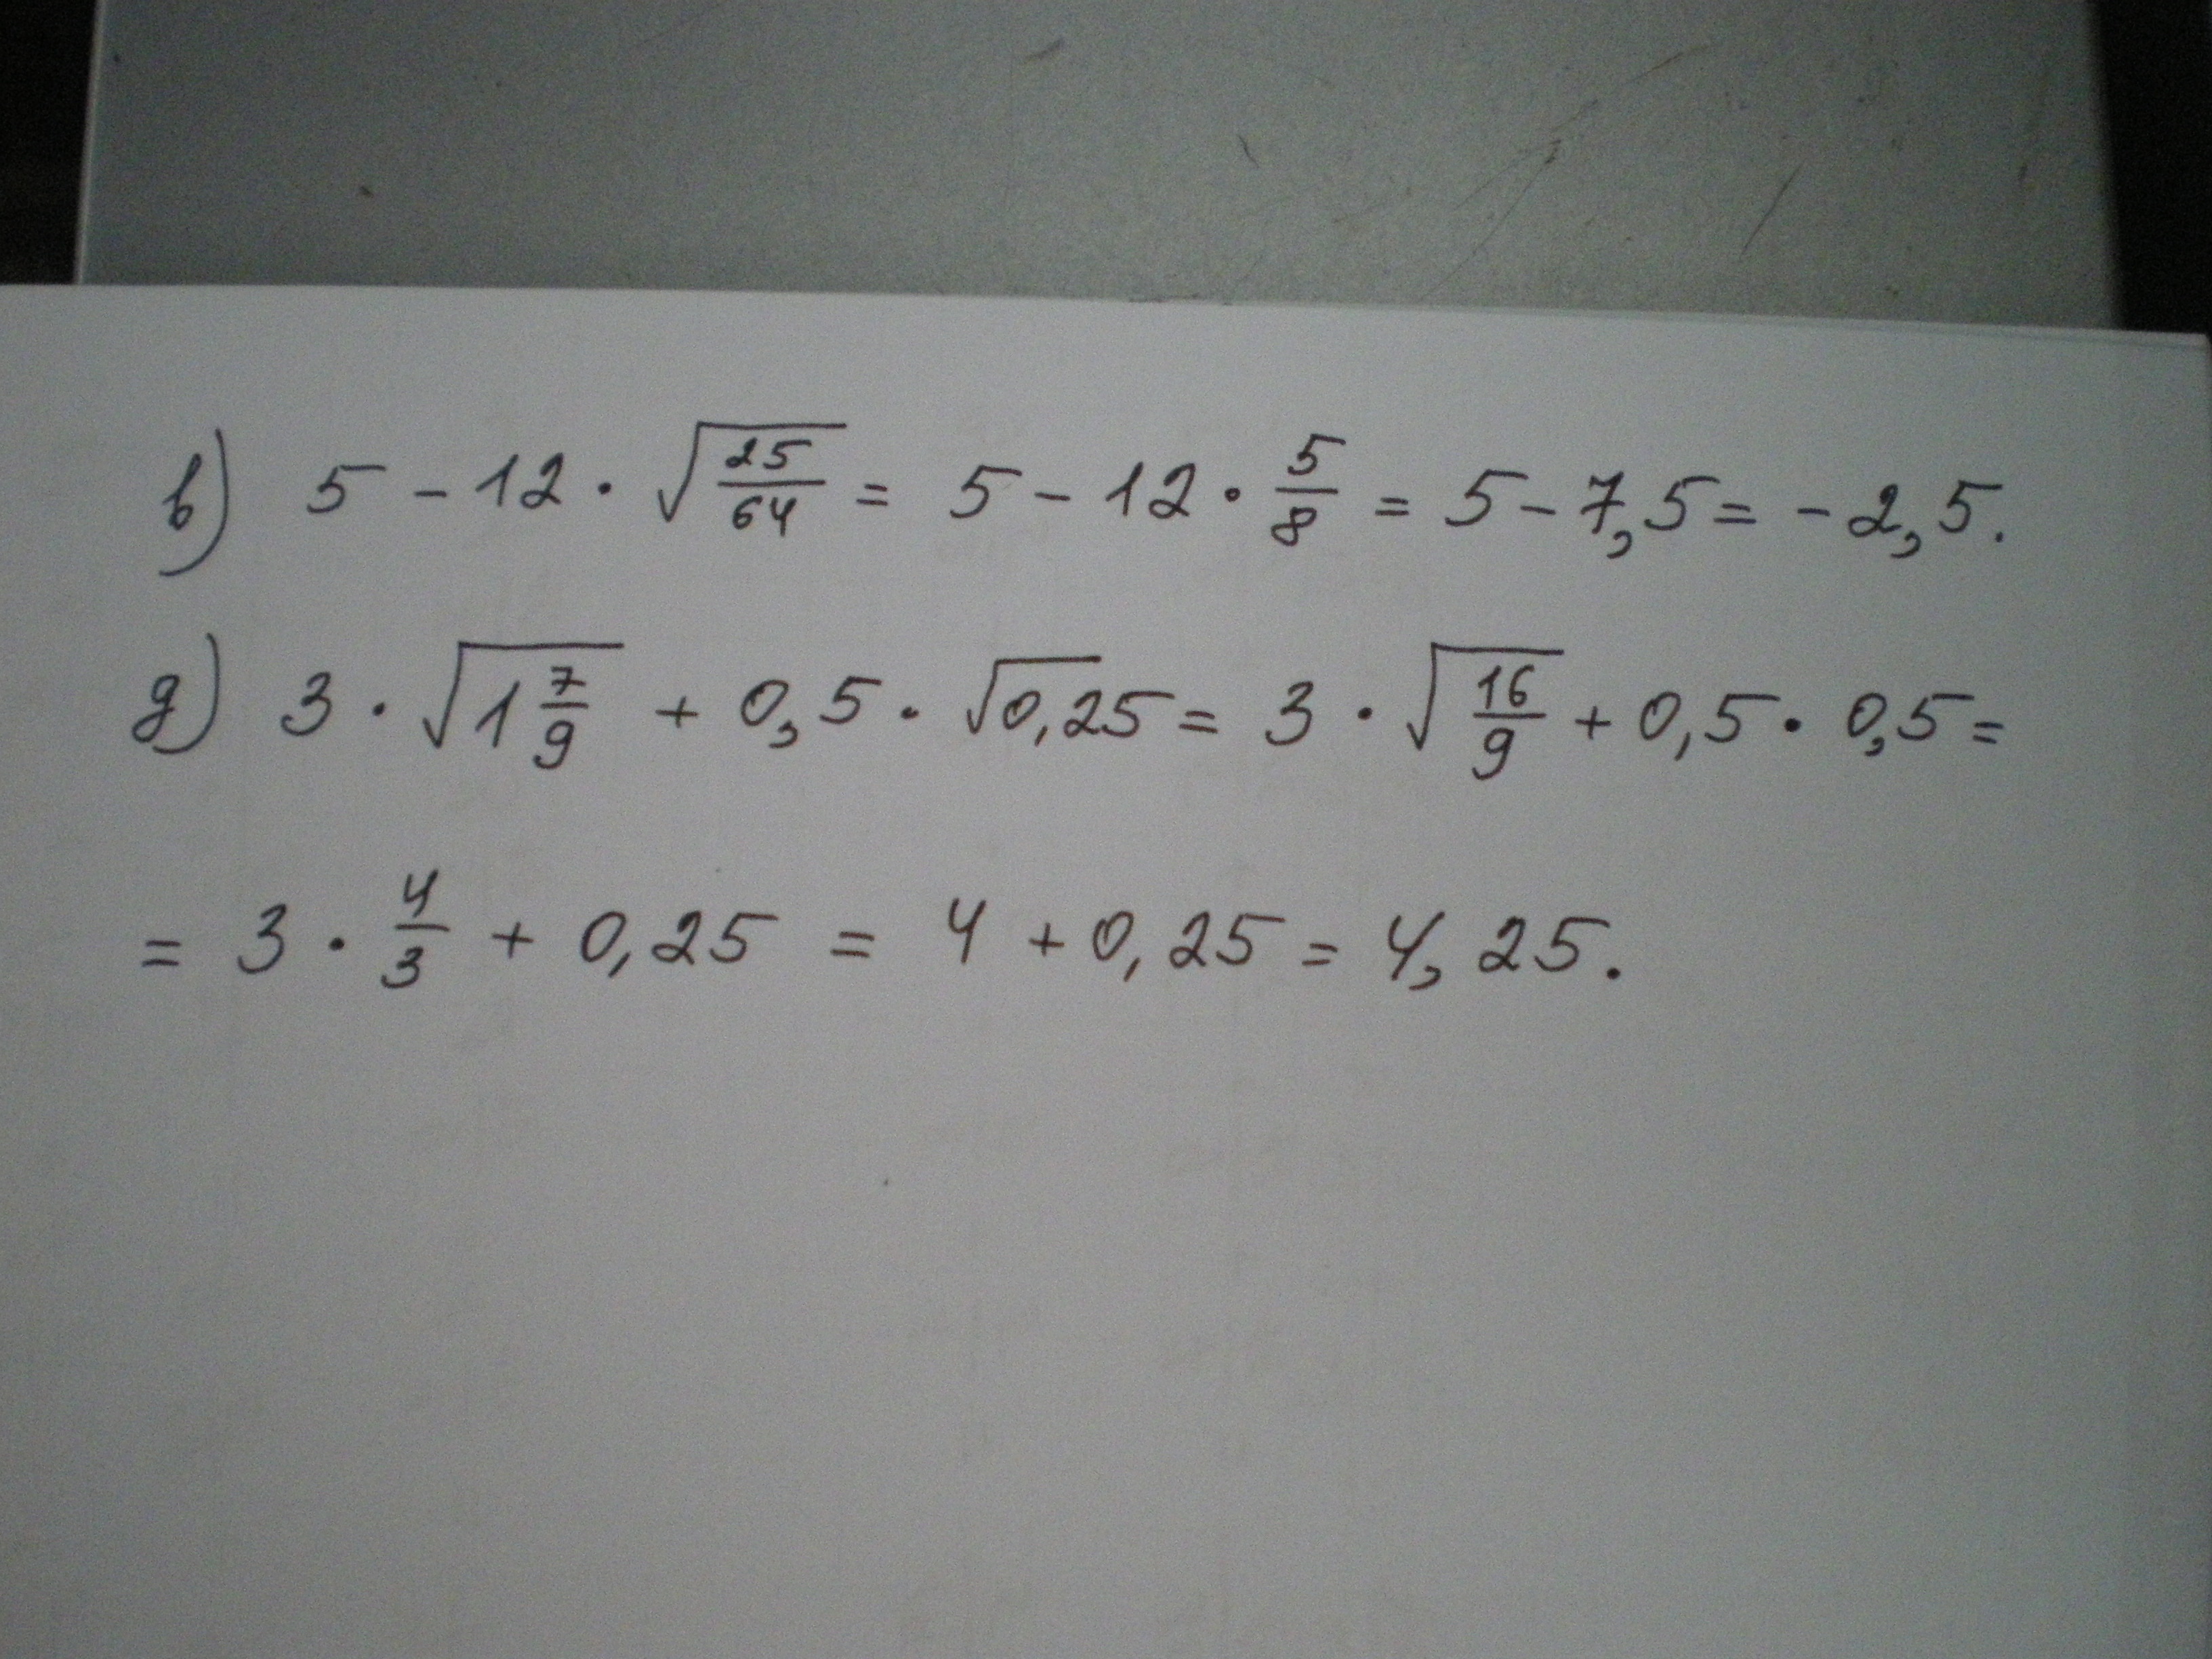 в) 5 - 12 · √(25/64) = 5 - 12 · 5/8 = 5 - 7,5 = - 2,5.
д) 3 · √(1 7/9) + 0,5 · √0,25 = 3 · √(16/9) + 0,5 · 0,5 =
= 3 · 4/3 + 0,25 = 4 + 0,25 = 4,25.